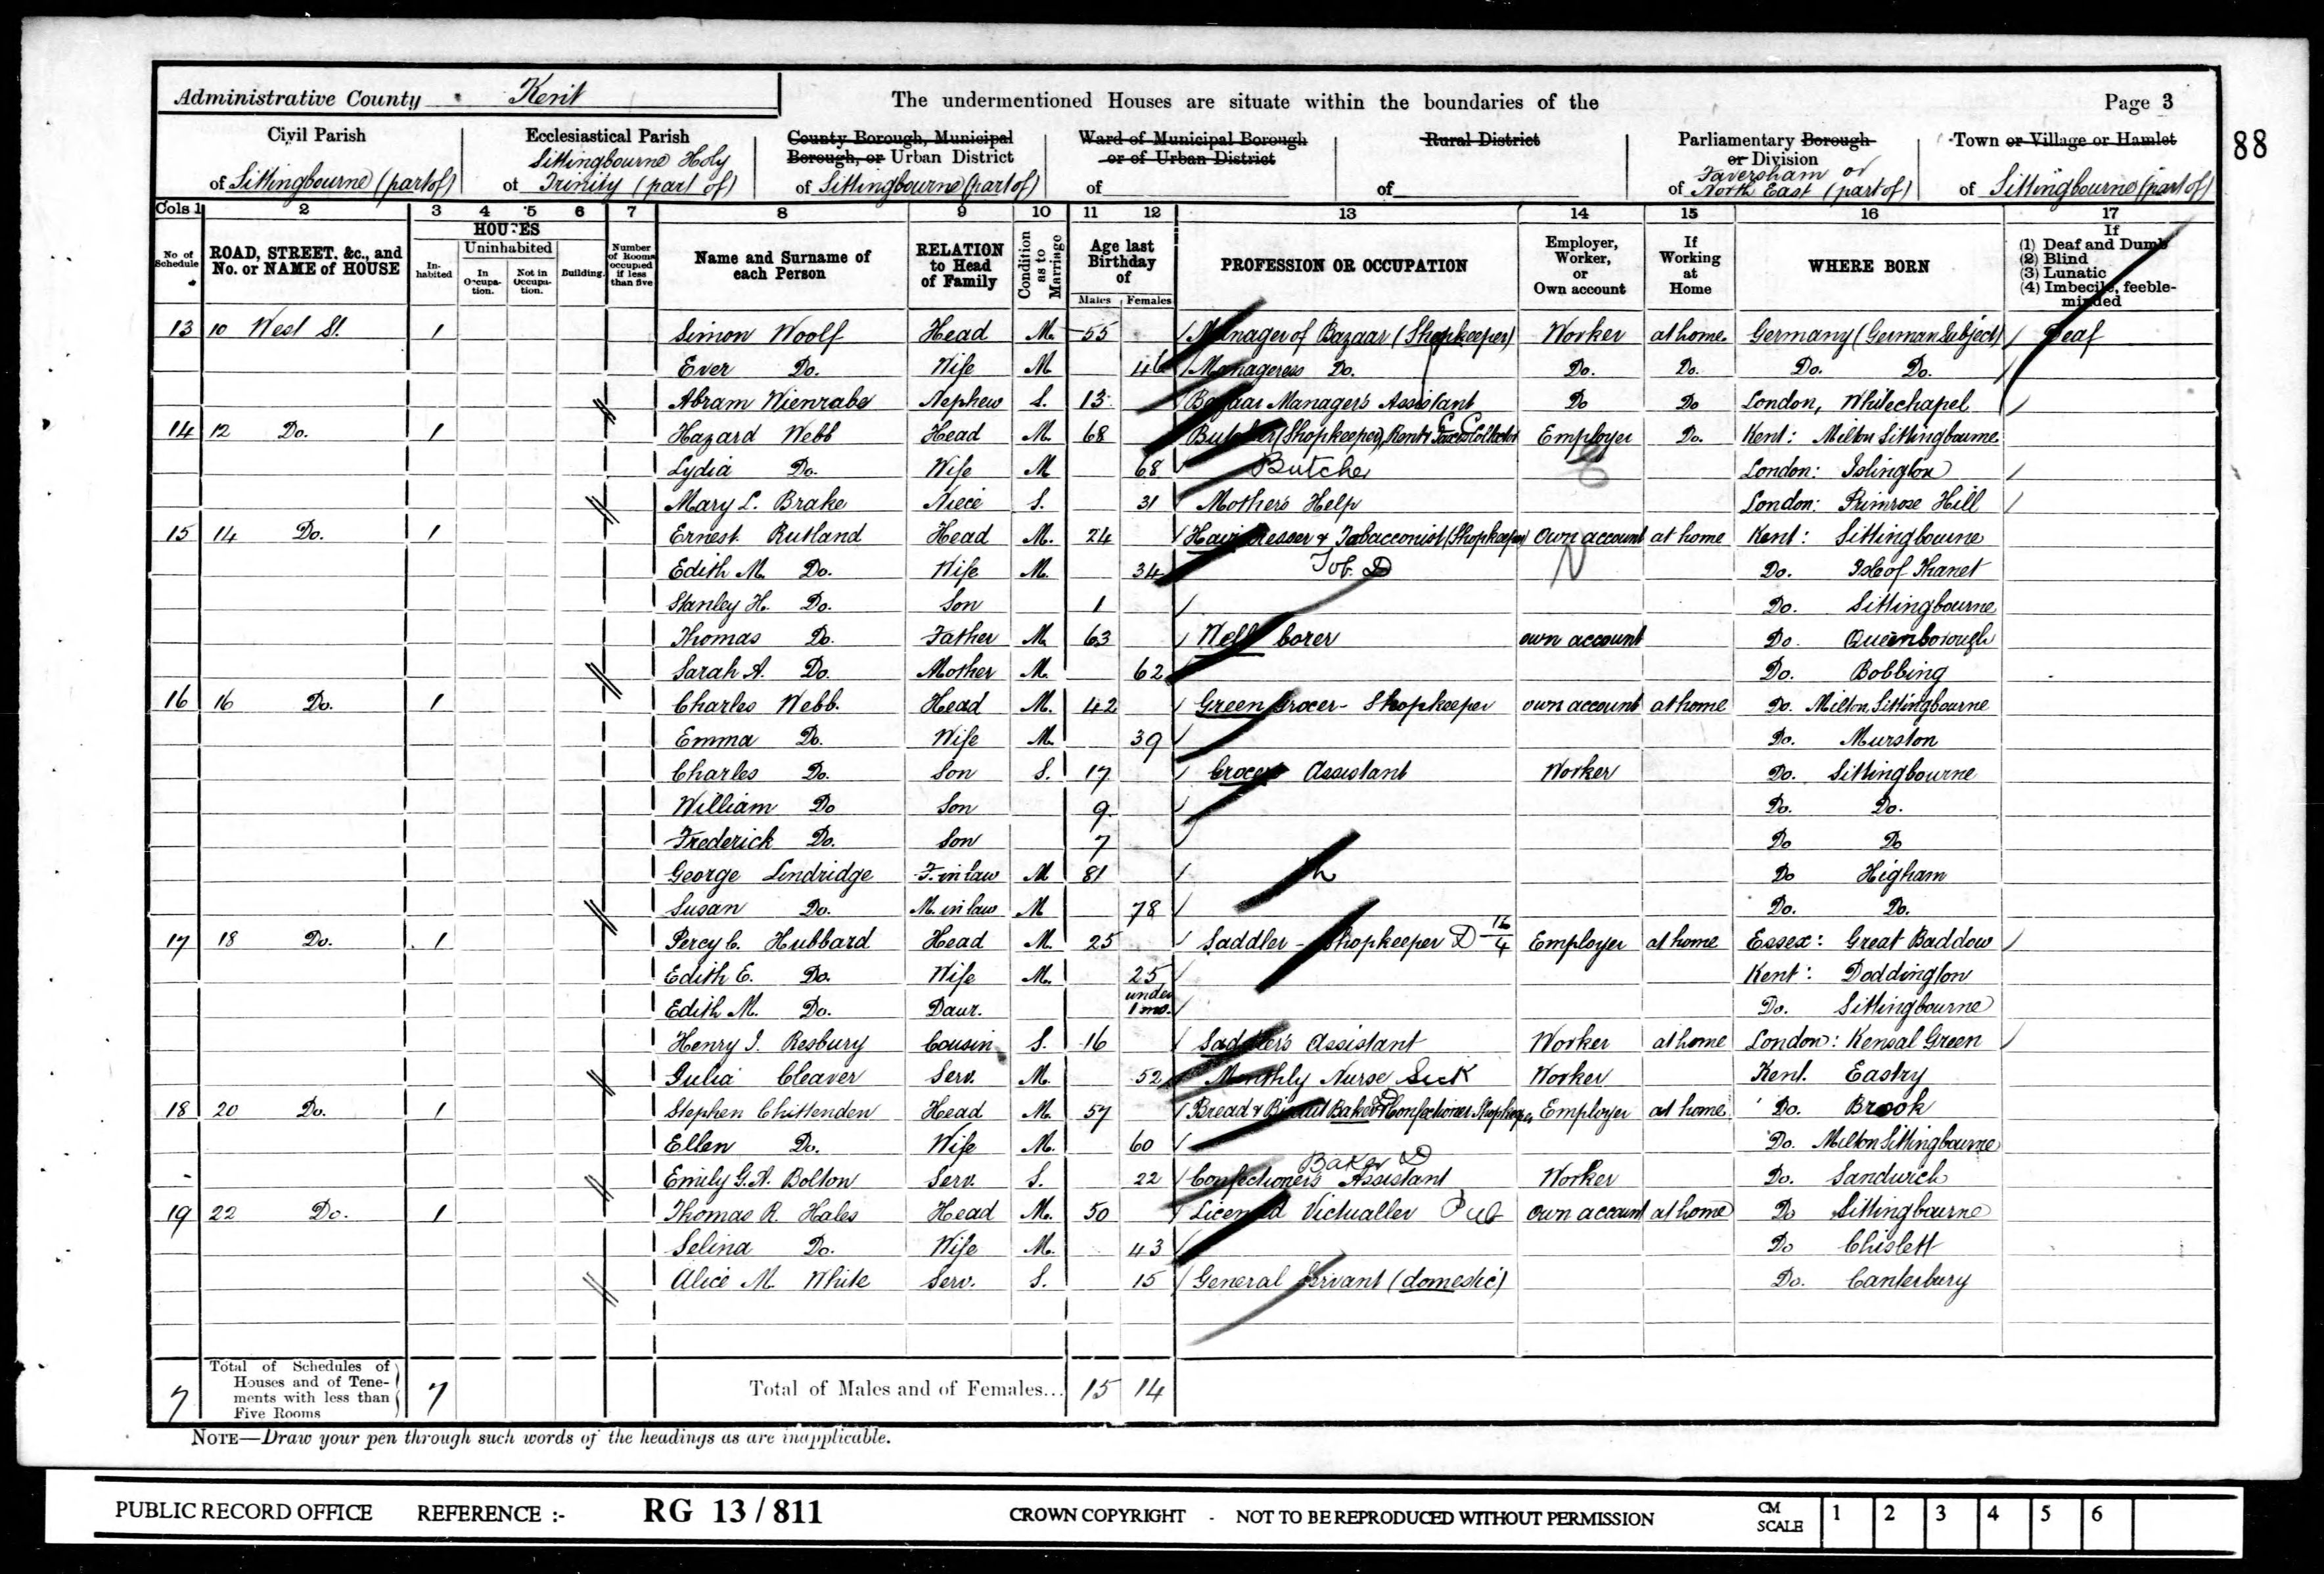 Administrative County Kent
The undermentioned Houses are situate within the boundaries of the
Page 3
88
Civil Parish
of Sittingbourne (part of)
Ecclesiastical Parish
of Sittingbourne Holy Trinity (part of)
County Borough, Municipal Borough, or Urban District
of Sittingbourne (part of)
Ward of Municipal Borough or of Urban District
of
Rural District
of
Parliamentary Borough or Division
of Faversham or North East (part of)
Town or Village or Hamlet
of Sittingbourne (part of)
Cols 1 2 3 4 5 6 7 8 9 10 11 12 13 14 15 16 17
No of Schedule
ROAD, STREET, &c., and No. or NAME of HOUSE
HOUSES
Inhabited
Uninhabited
In Occupation.
Not in Occupation.
Building
Number of Rooms occupied if less than five
Name and Surname of each Person
RELATION to Head of Family
Condition as to Marriage
Age last Birthday of
Males Females
PROFESSION OR OCCUPATION
Employer, Worker, or Own account
If Working at Home
WHERE BORN
If (1) Deaf and Dumb (2) Blind (3) Lunatic (4) Imbecile, feeble-minded
13 10 West St. 1 Simon Woolf Head M. 55 Manager of Bazaar (Shopkeeper) Worker at home Germany (German Subject) Deaf
Ever Do. Wife M 46 Manageress Do. Do. Do. Do. Do.
Abram Wienrabe Nephew S. 13 Bazaar Manager's Assistant Do Do London, Whitechapel
14 12 Do. 1 Hazard Webb Head M. 68 Butcher (Shopkeeper), Rent & Taxes Collector Employer Do. Kent: Milton Sittingbourne
Lydia Do. Wife M 68 Butcher London: Islington
Mary L. Brake Niece S. 31 Mother's Help London: Primrose Hill
15 14 Do. 1 Ernest Rutland Head M. 24 Hair Dresser & Tobacconist (Shopkeeper) Own account at home Kent: Sittingbourne
Edith M. Do. Wife M. 34 Tob. D N Do. Isle of Thanet
Stanley H. Do. Son 1 Do. Sittingbourne
Thomas Do. Father M. 63 Well borer own account Do. Queenborough
Sarah A. Do. Mother M. 62 Do. Bobbing
16 16 Do. 1 Charles Webb. Head M. 42 Green Grocer - Shopkeeper own account at home Do. Milton Sittingbourne
Emma Do. Wife M. 39 Do. Murston
Charles Do. Son S. 17 Grocer's Assistant Worker Do. Sittingbourne
William Do Son 9 Do. Do.
Frederick Do. Son 7 Do Do
George Lindridge F. in law M 81 Do Higham
Susan Do. M. in law M 78 Do. Do.
17 18 Do. 1 Percy C. Hubbard Head M. 25 Saddler - Shopkeeper D 16/4 Employer at home Essex: Great Baddow
Edith E. Do. Wife M. 25 Kent: Doddington
Edith M. Do. Daur. under 1 mo. Do. Sittingbourne
Henry J. Resbury Cousin S. 16 Saddler's Assistant Worker at home London: Kensal Green
Julia Cleaver Serv. M. 52 Monthly Nurse Sick Worker Kent. Eastry
18 20 Do. 1 Stephen Chittenden Head M. 57 Bread & Biscuit Baker & Confectioner Shopkeeper Employer at home Do. Brook
Ellen Do. Wife M. 60 Do. Milton Sittingbourne
Baker D
Emily G.A. Bolton Serv. S. 22 Confectioner's Assistant Worker Do. Sandwich
19 22 Do. 1 Thomas R. Hales Head M. 50 Licensed Victualler Pub own account at home Do Sittingbourne
Selina Do. Wife M. 43 Do Chislett
Alice M. White Serv. S. 15 General Servant (domestic) Do. Canterbury
7 Total of Schedules of Houses and of Tenements with less than Five Rooms 7 Total of Males and of Females... 15 14
NOTE—Draw your pen through such words of the headings as are inapplicable.
PUBLIC RECORD OFFICE REFERENCE :- RG 13/811 CROWN COPYRIGHT - NOT TO BE REPRODUCED WITHOUT PERMISSION CM SCALE 1 2 3 4 5 6